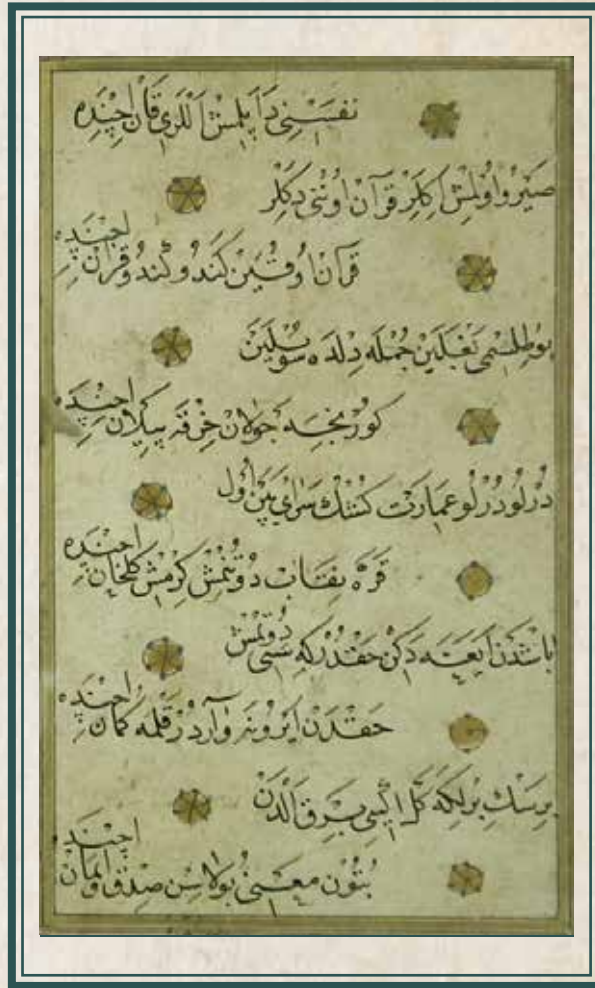 نفسنی دپلمش اللری قان اچنده
صیرو اولمش اکلر قرآن اوننی دکلر
قرآن اوقین کندو کندو قران اچنده
بو طلسمی بغلین جمله دلده سویلین
کورنجه جولان خرقه
درلو درلو عمارت کشك سرای یپن اول
قره نقاب دوتنمش کرمش کلخان اچنده
باشدن ایغه دکن حقدر که سنی دوتمش
حقدن ایرو نه واردر قلمه کمان اچنده
برسك برلکه کل ایکیی برق الدن
بتون معنی بولاسن صدق و ایمان اچنده